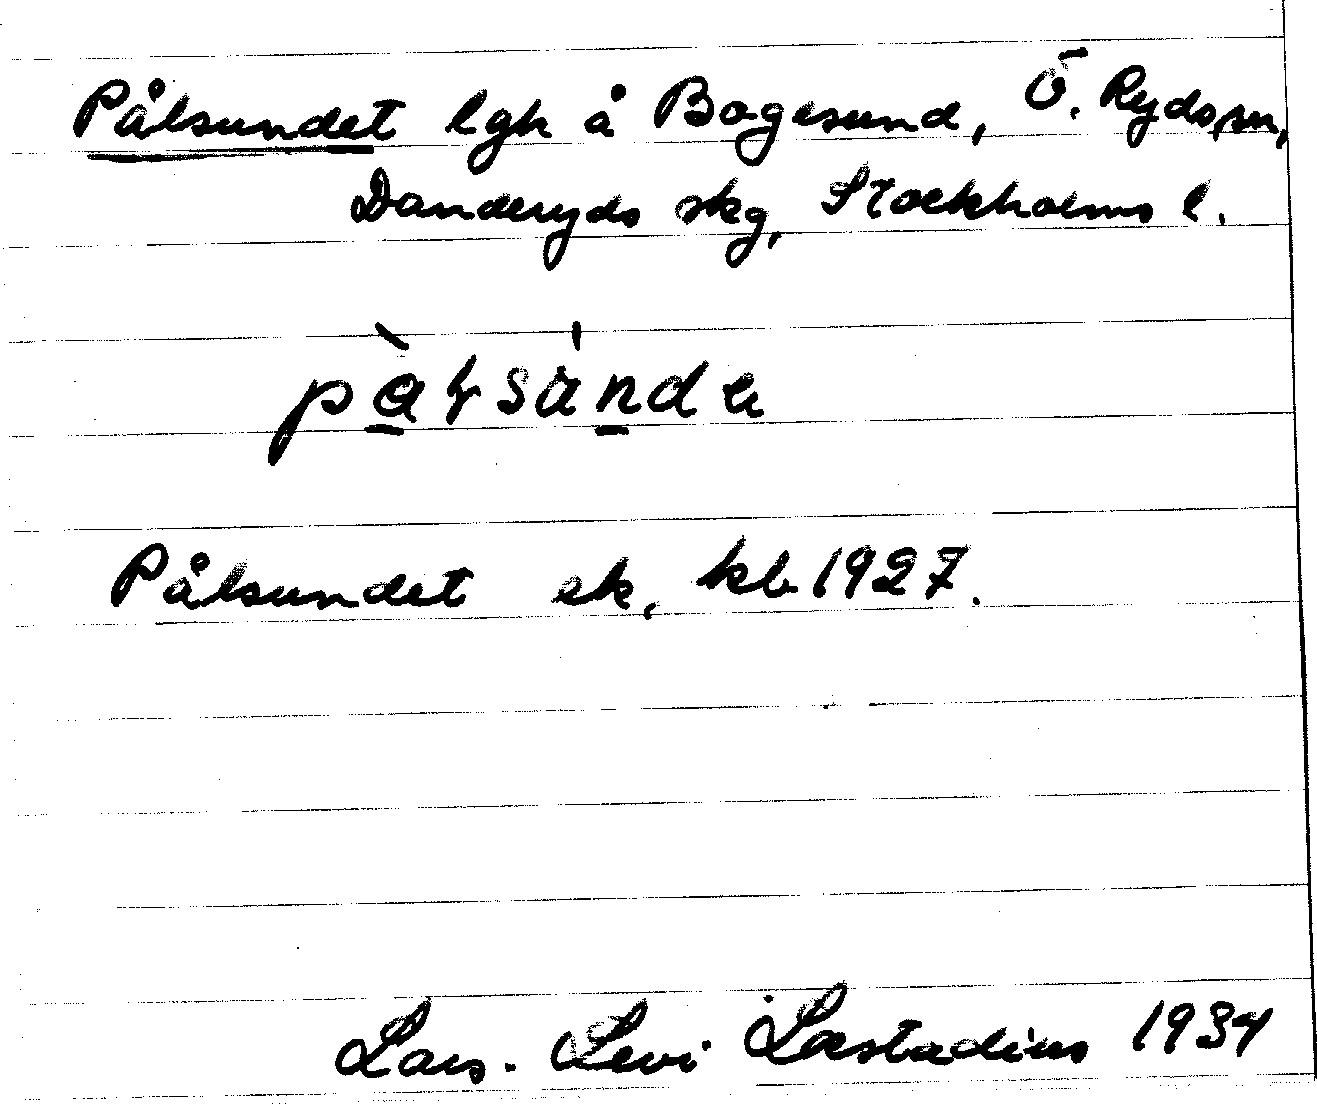 Pålsundet lgh å Bogesund, Ö. Ryds sn,
Danderyds skg, Stockholms l.
Pålsundet ek, kb 1927.
Lars-Levi Læstadius 1934